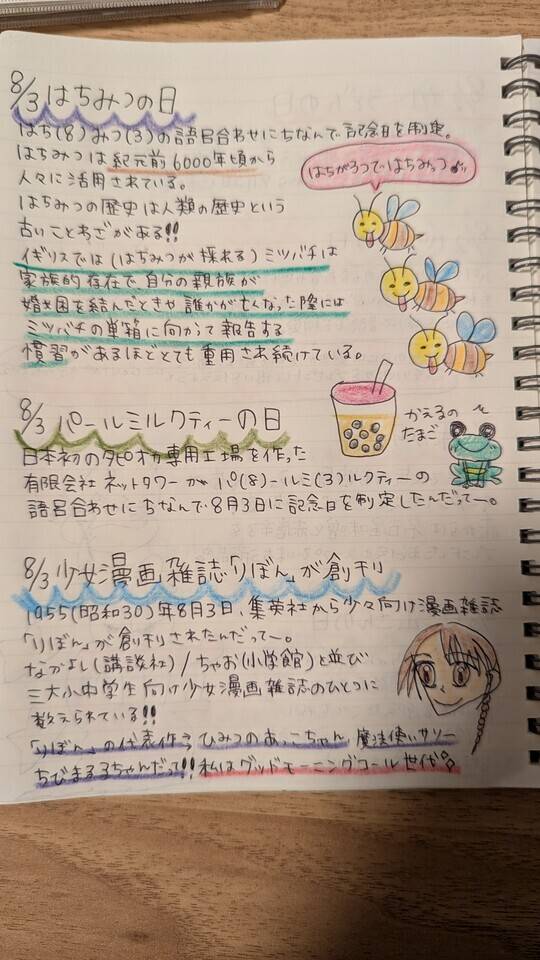 8/3 はちみつの日
はち(8)みつ(3)の語呂合わせにちなんで記念日を制定。
はちみつは紀元前6000年頃から
人々に活用されている。
はちみつの歴史は人類の歴史という
古いことわざがある!!
イギリスでは(はちみつが採れる)ミツバチは
家族的存在で、自分の親族が
婚姻を結んだときや誰かが亡くなった際には
ミツバチの巣箱に向かって報告する
慣習があるほどとても重用され続けている。
はちが3つではちみっつ♪
8/3 パールミルクティーの日
日本初のタピオカ専用工場を作った
有限会社ネットタワーがパ(8)ールミ(3)ルクティーの
語呂合わせにちなんで8月3日に記念日を制定したんだってー。
かえるの
たまご
8/3 少女漫画雑誌「りぼん」が創刊
1955(昭和30)年8月3日、集英社から少女向け漫画雑誌
「りぼん」が創刊されたんだってー。
なかよし(講談社)/ちゃお(小学館)と並び
三大小中学生向け少女漫画雑誌のひとつに
数えられている!!
「りぼん」の代表作って ひみつのあっこちゃん 魔法使いサリー
ちびまる子ちゃんだって!! 私はグッドモーニングコール世代